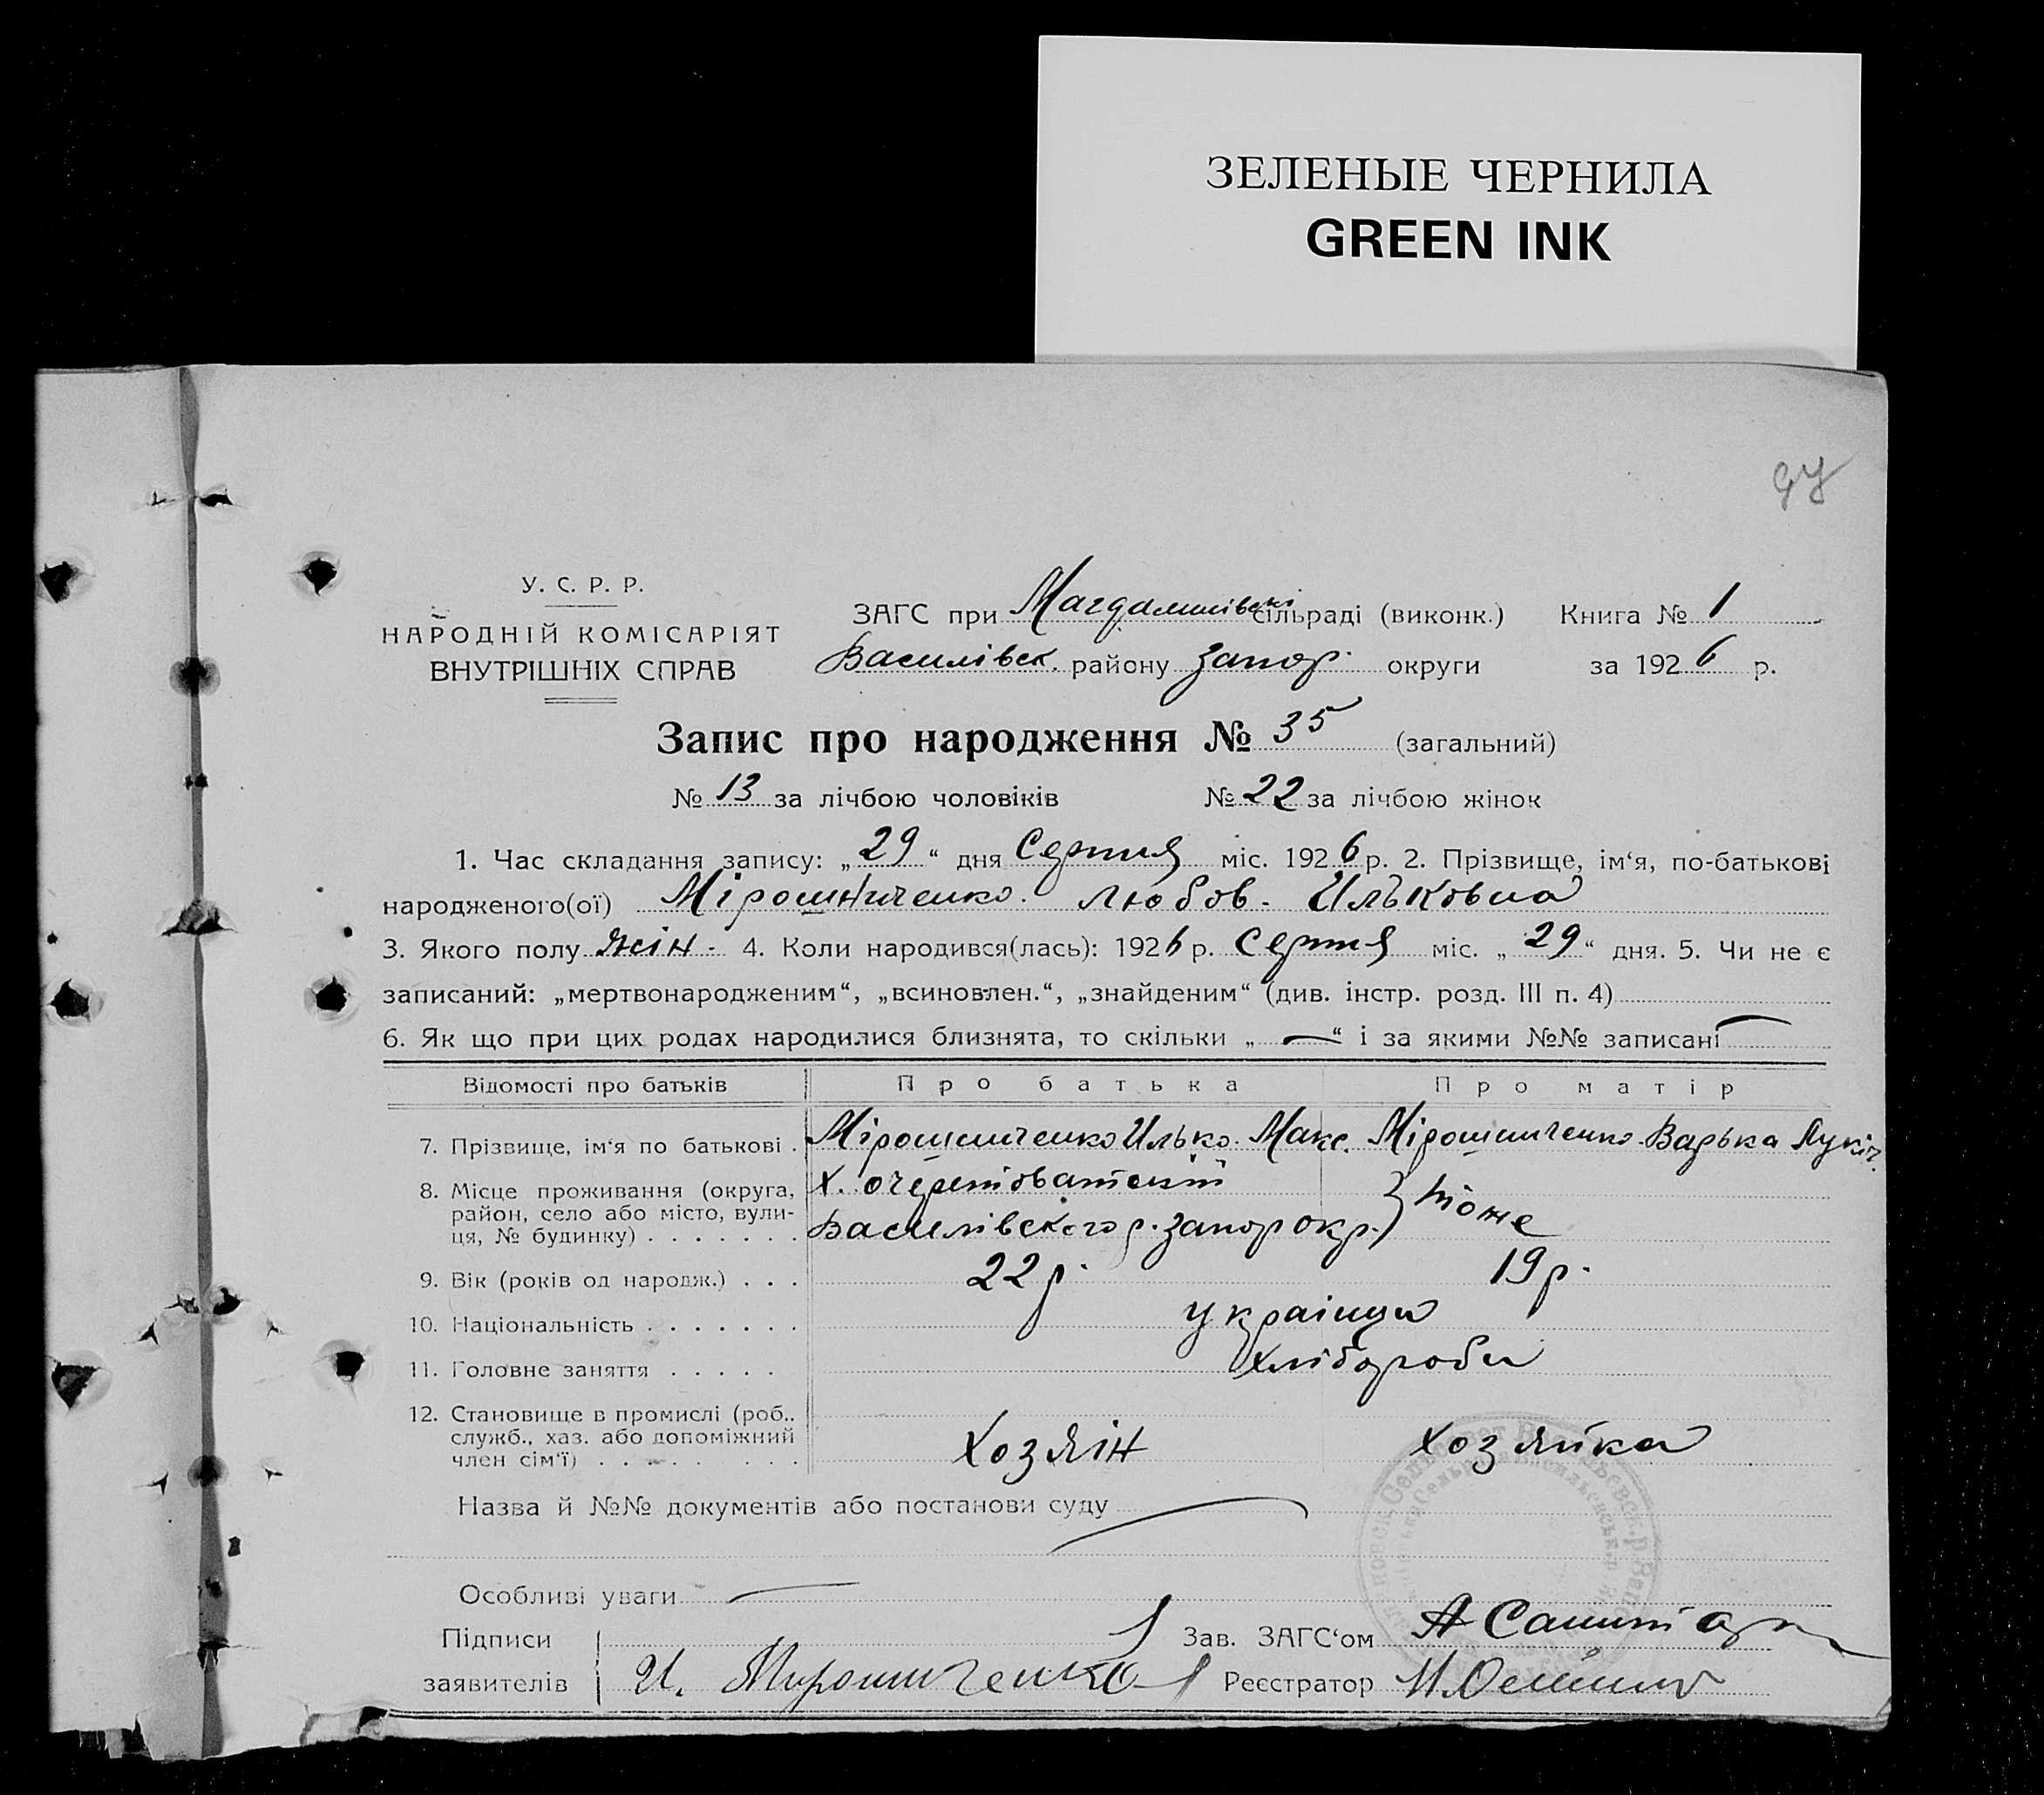 ЗЕЛЕНЫЕ ЧЕРНИЛА
GREEN INK
У. С. Р. Р.
НАРОДНІЙ КОМІСАРІЯТ
ВНУТРІШНІХ СПРАВ
ЗАГС при Магдалинівські сільраді (виконк.) Книга № 1
Василівск. району Запор. округи за 1926 р.
Запис про народження № 35 (загальний)
№ 13 за лічбою чоловіків № 22 за лічбою жінок
1. Час складання запису: „29“ дня Серпня міс. 1926 р. 2. Прізвище, ім‘я, по-батькові
народженого(ої) Мірошниченко Любов Илѣковна
3. Якого полу жін. 4. Коли народився(лась): 1926 р. Серпня міс. „29“ дня. 5. Чи не є
записаний: „мертвонародженим“, „всиновлен.“, „знайденим“ (див. інстр. розд. III п. 4)
6. Як що при цих родах народилися близнята, то скільки „—“ і за якими №№ записані —
Відомості про батьків Про батька Про матір
7. Прізвище, ім‘я по батькові . Мірошниченко Илько Макс. Мірошниченко Варька Лукін.
8. Місце проживання (округа, район, село або місто, вулиця, № будинку) . . . . . . . Х. Очеретоватский
Василівского р. Запор окр. } тоже
9. Вік (років од народж.) . . . 22 р. 19 р.
10. Національність . . . . . . . українци
11. Головне заняття . . . . . Хлібороби
12. Становище в промислі (роб., служб., хаз. або допоміжний член сім‘ї) . . . . . . . . Хозяін хозяйка
Назва й №№ документів або постанови суду
Особливі уваги —
Підписи
заявителів И. Мирошниченко
Зав. ЗАГС‘ом А
Реєстратор